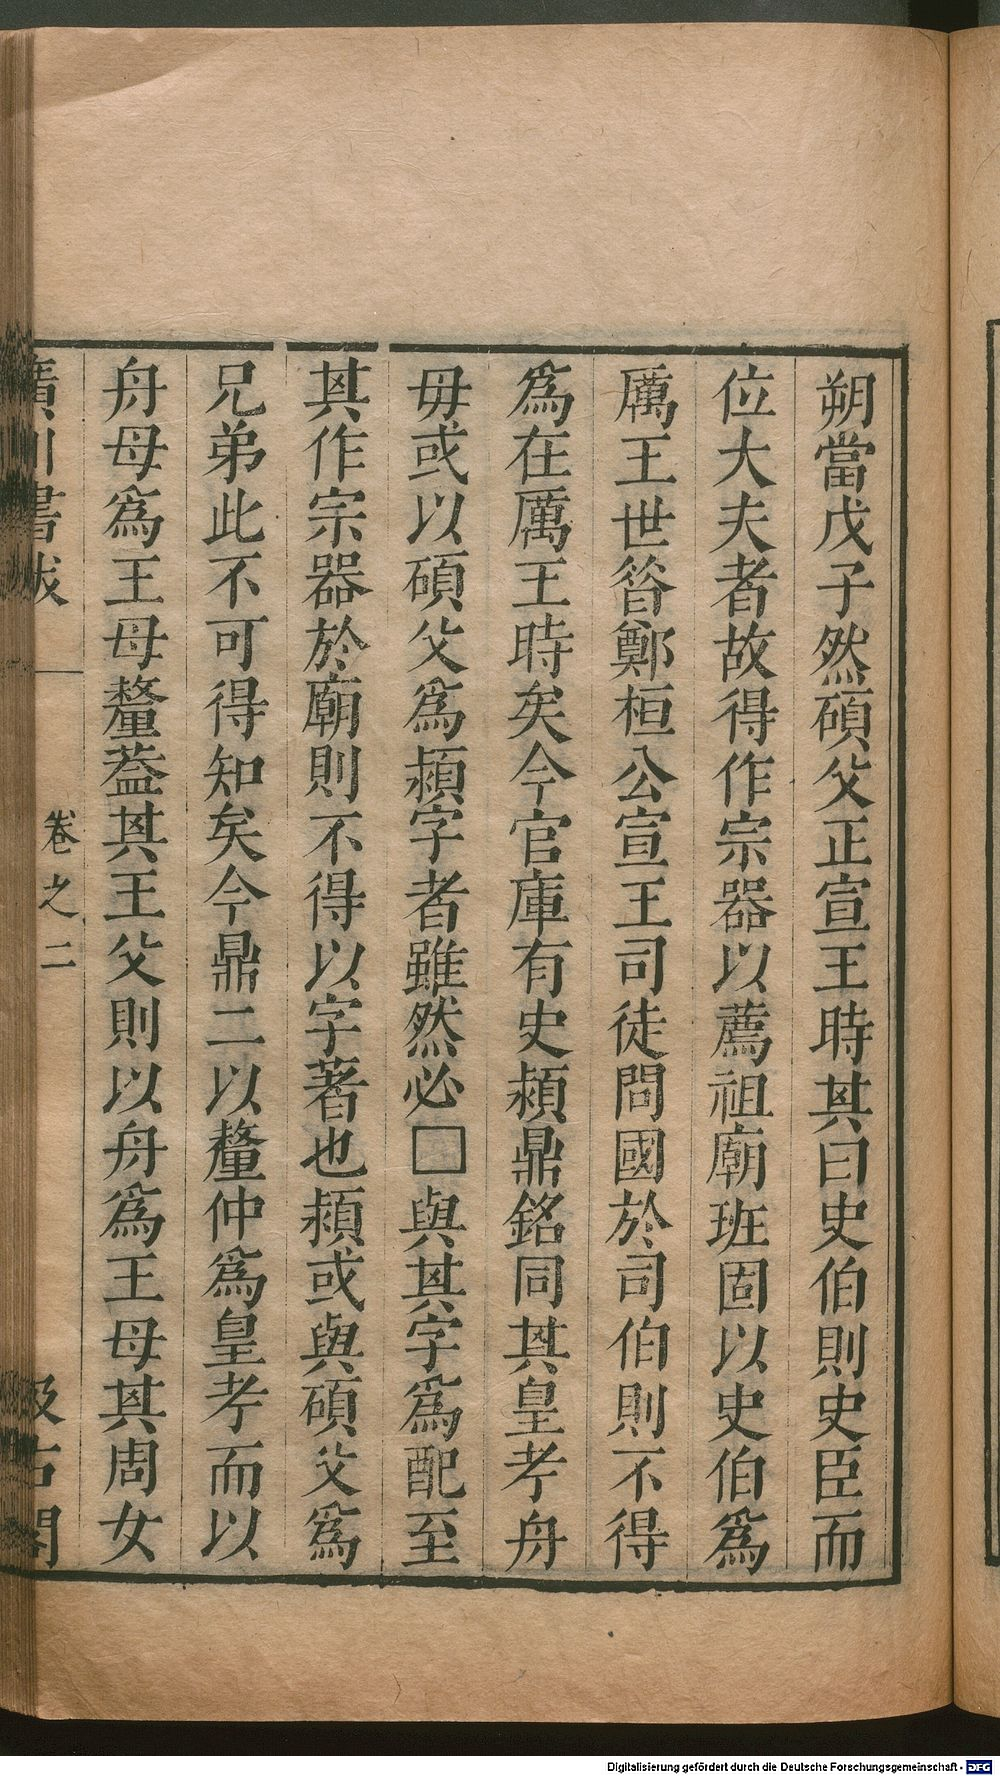 朔當戊子然碩父正宣王時其曰史伯則史臣而
位大夫者故得作宗器以薦祖廟班固以史伯為
厲王世昝鄭桓公宣王司徒問國於司伯則不得
為在厲王時矣今官庫有史頞鼎銘同其皇考舟
毋或以碩父為頞字者雖然必□與其字為配至
其作宗器於廟則不得以字著也頞或與碩父為
兄弟此不可得知矣今鼎二以釐仲為皇考而以
舟母為王母釐葢其王父則以舟為王母其周女
廣川書跋 卷之二 汲古閣
Digitalisierung gefördert durch die Deutsche Forschungsgemeinschaft - DFG